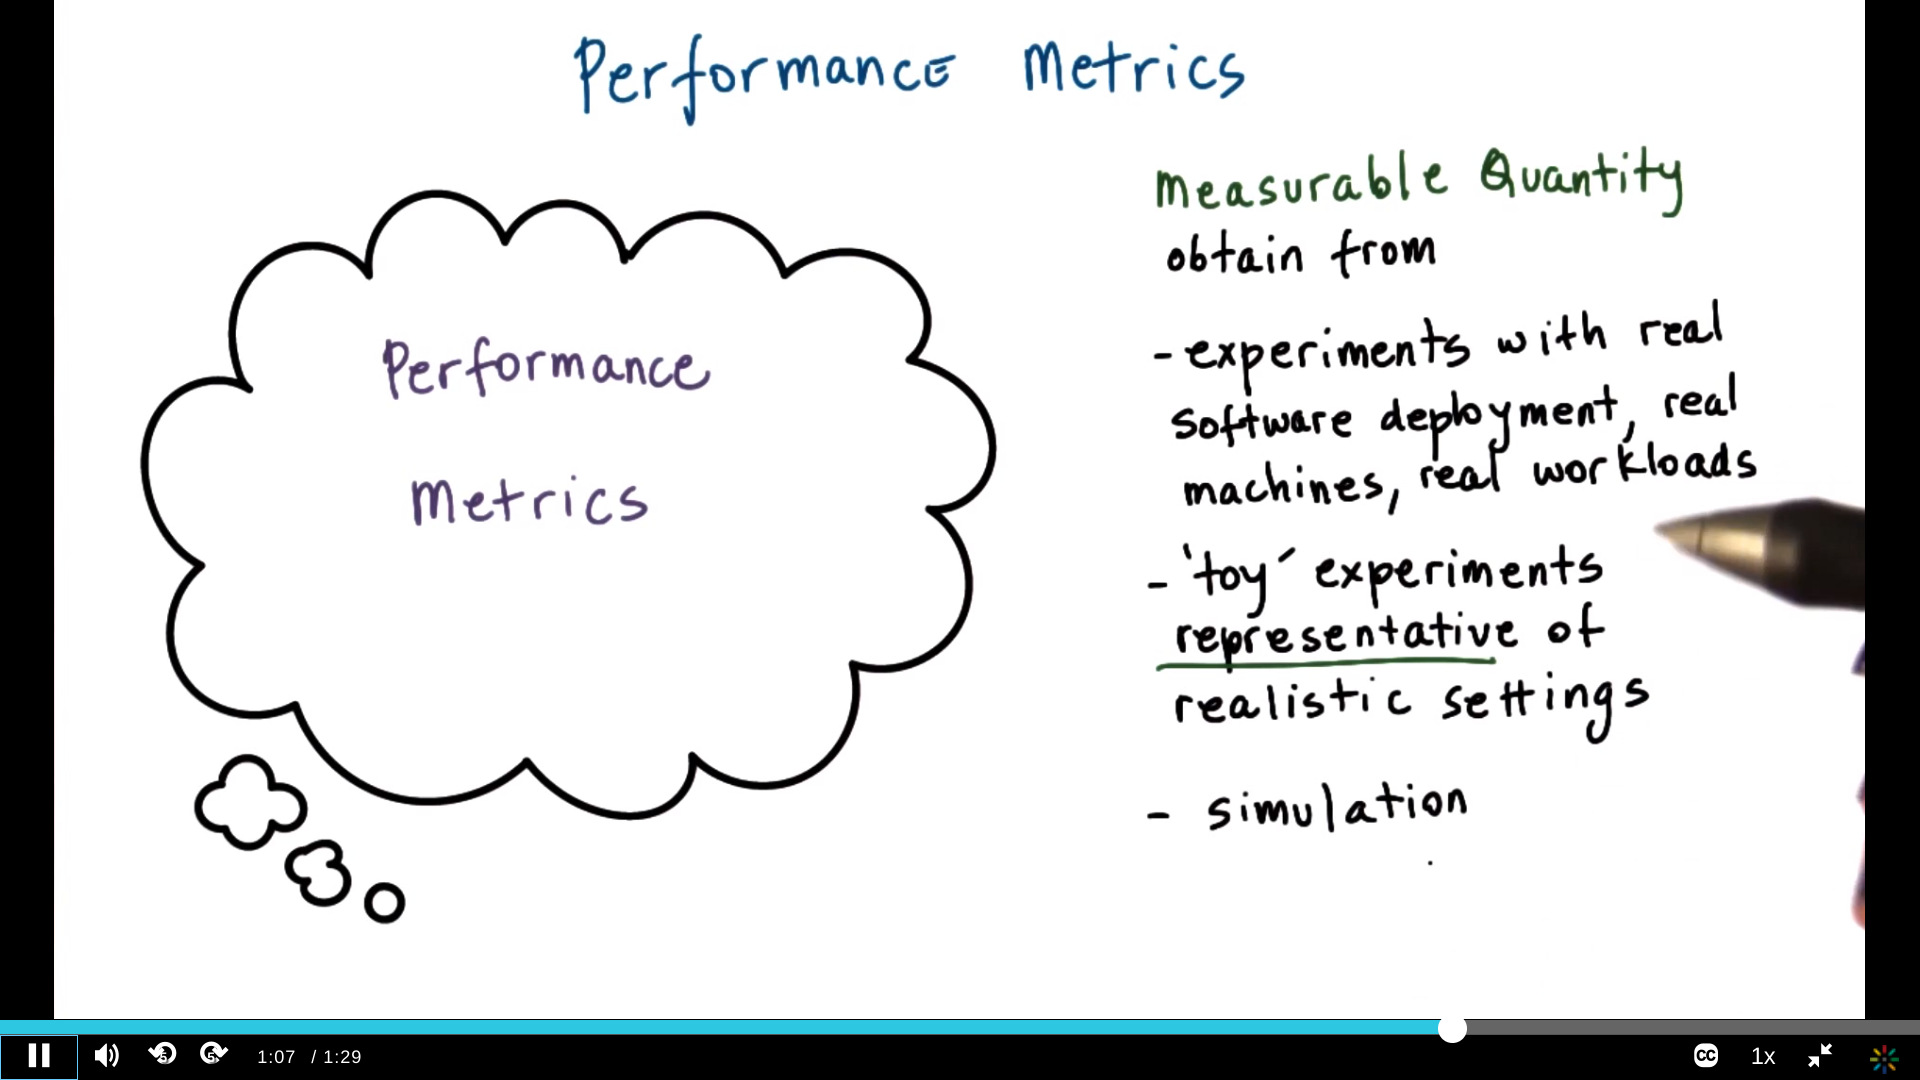 Performance Metrics
Performance
Metrics
Measurable Quantity
obtain from
- experiments with real
software deployment, real
machines, real workloads
- 'toy' experiments
representative of
realistic settings
- simulation
5
5
1:07 / 1:29
CC
1x